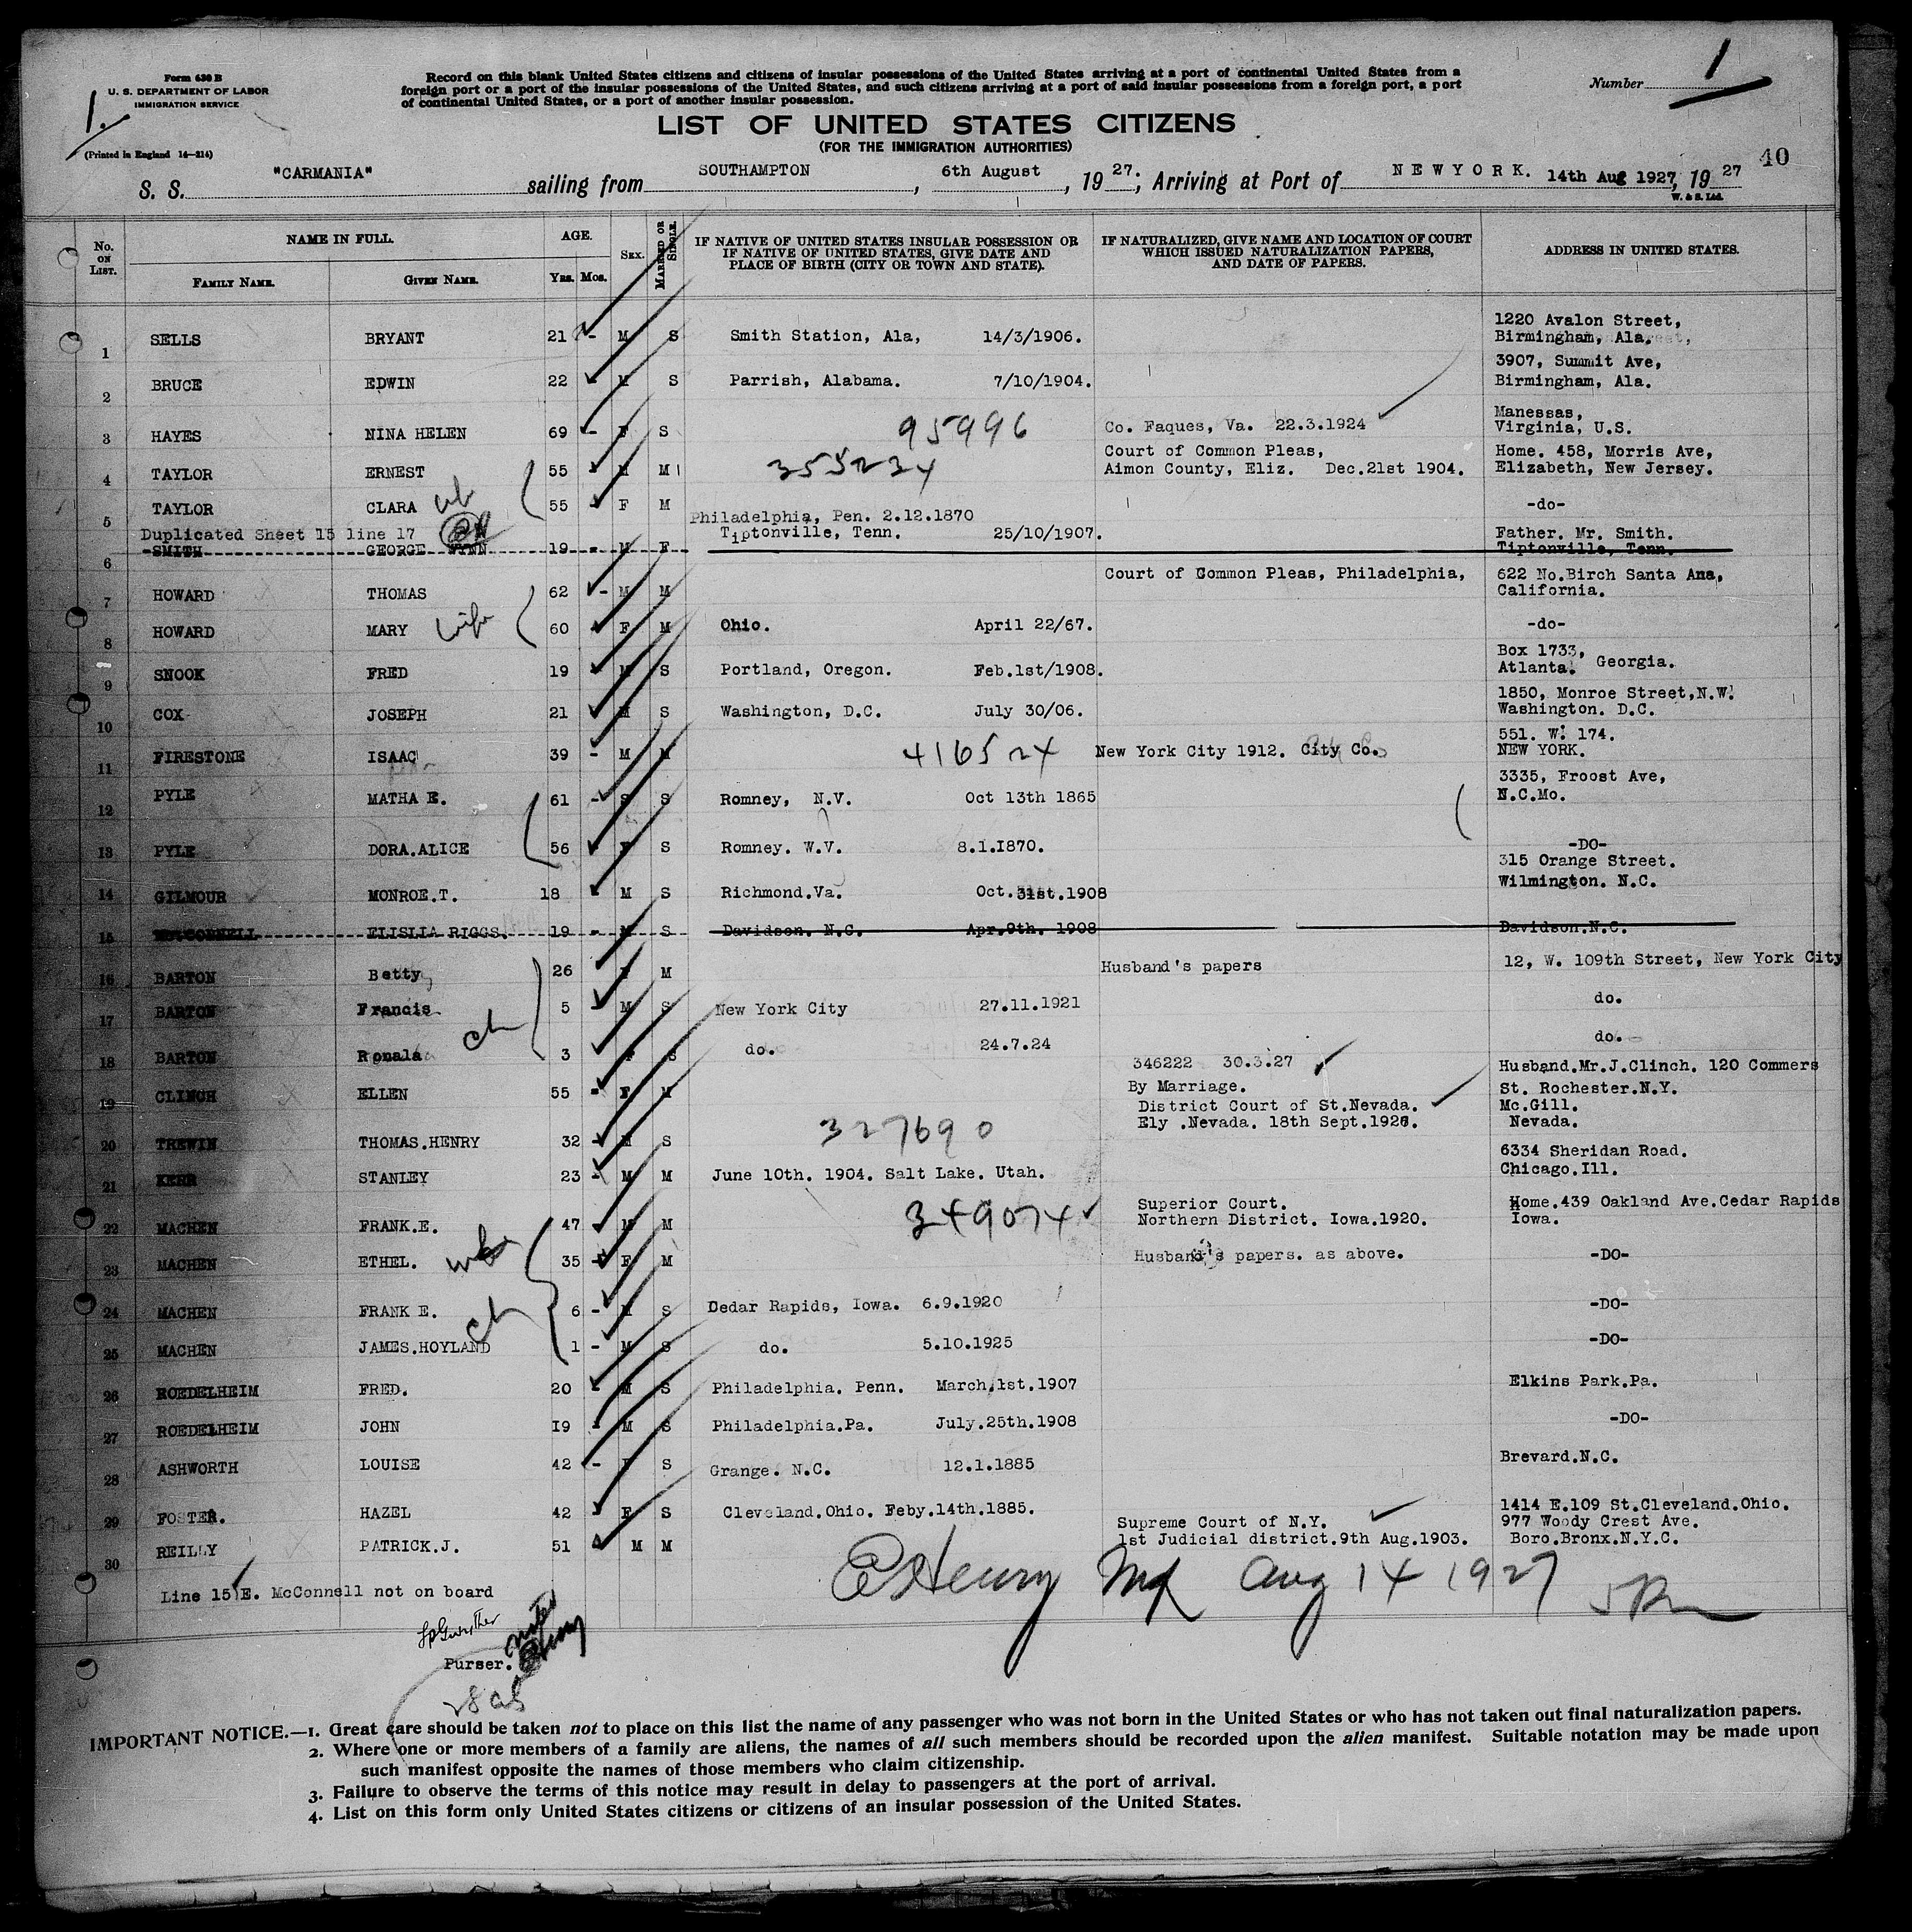 Form 630 B
U. S. DEPARTMENT OF LABOR
IMMIGRATION SERVICE
1.
(Printed in England 14—214)
Record on this blank United States citizens and citizens of insular possessions of the United States arriving at a port of continental United States from a
foreign port or a port of the insular possessions of the United States, and such citizens arriving at a port of said insular possessions from a foreign port, a port
of continental United States, or a port of another insular possession.
Number 1
LIST OF UNITED STATES CITIZENS
(FOR THE IMMIGRATION AUTHORITIES)
40
S. S. "CARMANIA" sailing from SOUTHAMPTON, 6th August, 19 27.; Arriving at Port of NEWYORK. 14th Aug 1927, 19 27
W. & S. Ltd.
No. ON LIST. NAME IN FULL. FAMILY NAME. GIVEN NAME. AGE. YRS. MOS. SEX. MARRIED OR SINGLE. IF NATIVE OF UNITED STATES INSULAR POSSESSION OR IF NATIVE OF UNITED STATES, GIVE DATE AND PLACE OF BIRTH (CITY OR TOWN AND STATE). IF NATURALIZED, GIVE NAME AND LOCATION OF COURT WHICH ISSUED NATURALIZATION PAPERS, AND DATE OF PAPERS. ADDRESS IN UNITED STATES.
1 SELLS BRYANT 21 - M S Smith Station, Ala, 14/3/1906. 1220 Avalon Street, Birmingham, Ala.
2 BRUCE EDWIN 22 - M S Parrish, Alabama. 7/10/1904. 3907, Summit Ave, Birmingham, Ala.
3 HAYES NINA HELEN 69 - F S 95996 Co. Faques, Va. 22.3.1924 Manessas, Virginia, U.S.
4 TAYLOR ERNEST 55 - M M 355234 Court of Common Pleas, Aimon County, Eliz. Dec.21st 1904. Home. 458, Morris Ave, Elizabeth, New Jersey.
5 TAYLOR CLARA 55 - F M Philadelphia, Pen. 2.12.1870 -do-
Duplicated Sheet 15 line 17
6 SMITH GEORGE WYNN 19 - M F Tiptonville, Tenn. 25/10/1907. Father. Mr. Smith. Tiptonville, Tenn.
7 HOWARD THOMAS 62 - M M Court of Common Pleas, Philadelphia, 622 No.Birch Santa Ana, California.
8 HOWARD MARY wife 60 F M Ohio. April 22/67. -do-
9 SNOOK FRED 19 M S Portland, Oregon. Feb.1st/1908. Box 1733, Atlanta. Georgia.
10 COX JOSEPH 21 M S Washington, D.C. July 30/06. 1850, Monroe Street,N.W. Washington. D.C.
11 FIRESTONE ISAAC 39 - M M 416524 New York City 1912. City Co. 551. W. 174. NEW YORK.
12 PYLE MATHA E. 61 - S S Romney, N.V. Oct 13th 1865 3335, Froost Ave, N.C.Mo.
13 PYLE DORA.ALICE 56 F S Romney. W.V. 8.1.1870. -DO-
14 GILMOUR MONROE.T. 18 M S Richmond.Va. Oct.31st.1908 315 Orange Street. Wilmington. N.C.
15 McCONNELL ELISLIA RIGGS. 19 - M S Davidson. N.C. Apr.9th. 1908 Davidson.N.C.
16 BARTON Betty 26 F M Husband's papers 12, W. 109th Street, New York City
17 BARTON Francis 5 M S New York City 27.11.1921 do.
18 BARTON Ronala ch 3 F S do. 24.7.24 do.
19 CLINCH ELLEN 55 - F M 346222 30.3.27 By Marriage. Husband.Mr.J.Clinch. 120 Commers St. Rochester.N.Y.
20 TREWIN THOMAS.HENRY 32 - M S 327690 District Court of St.Nevada. Ely .Nevada. 18th Sept.1926. Mc.Gill. Nevada.
21 KERR STANLEY 23 - M M June 10th. 1904. Salt Lake. Utah. 6334 Sheridan Road. Chicago.Ill.
22 MACHEN FRANK.E. 47 M M 349074 Superior Court. Northern District. Iowa.1920. Home.439 Oakland Ave.Cedar Rapids Iowa.
23 MACHEN ETHEL. 35 - F M Husband's papers. as above. -DO-
24 MACHEN FRANK E. 6 - M S Cedar Rapids, Iowa. 6.9.1920 -DO-
25 MACHEN JAMES.HOYLAND ch 1 - M S do. 5.10.1925 -DO-
26 ROEDELHEIM FRED. 20 - M S Philadelphia. Penn. March.1st.1907 Elkins Park.Pa.
27 ROEDELHEIM JOHN 19 - M S Philadelphia.Pa. July.25th.1908 -DO-
28 ASHWORTH LOUISE 42 - F S Grange. N.C. 12.1.1885 Brevard.N.C.
29 FOSTER. HAZEL 42 F S Cleveland.Ohio. Feby.14th.1885. 1414 E.109 St.Cleveland.Ohio.
30 REILLY PATRICK.J. 51 M M Supreme Court of N.Y. 1st Judicial district.9th Aug.1903. 977 Woody Crest Ave. Boro.Bronx.N.Y.C.
Line 15 E. McConnell not on board
Henry Aug 14 1927
Purser.
IMPORTANT NOTICE.—1. Great care should be taken not to place on this list the name of any passenger who was not born in the United States or who has not taken out final naturalization papers.
2. Where one or more members of a family are aliens, the names of all such members should be recorded upon the alien manifest. Suitable notation may be made upon
such manifest opposite the names of those members who claim citizenship.
3. Failure to observe the terms of this notice may result in delay to passengers at the port of arrival.
4. List on this form only United States citizens or citizens of an insular possession of the United States.